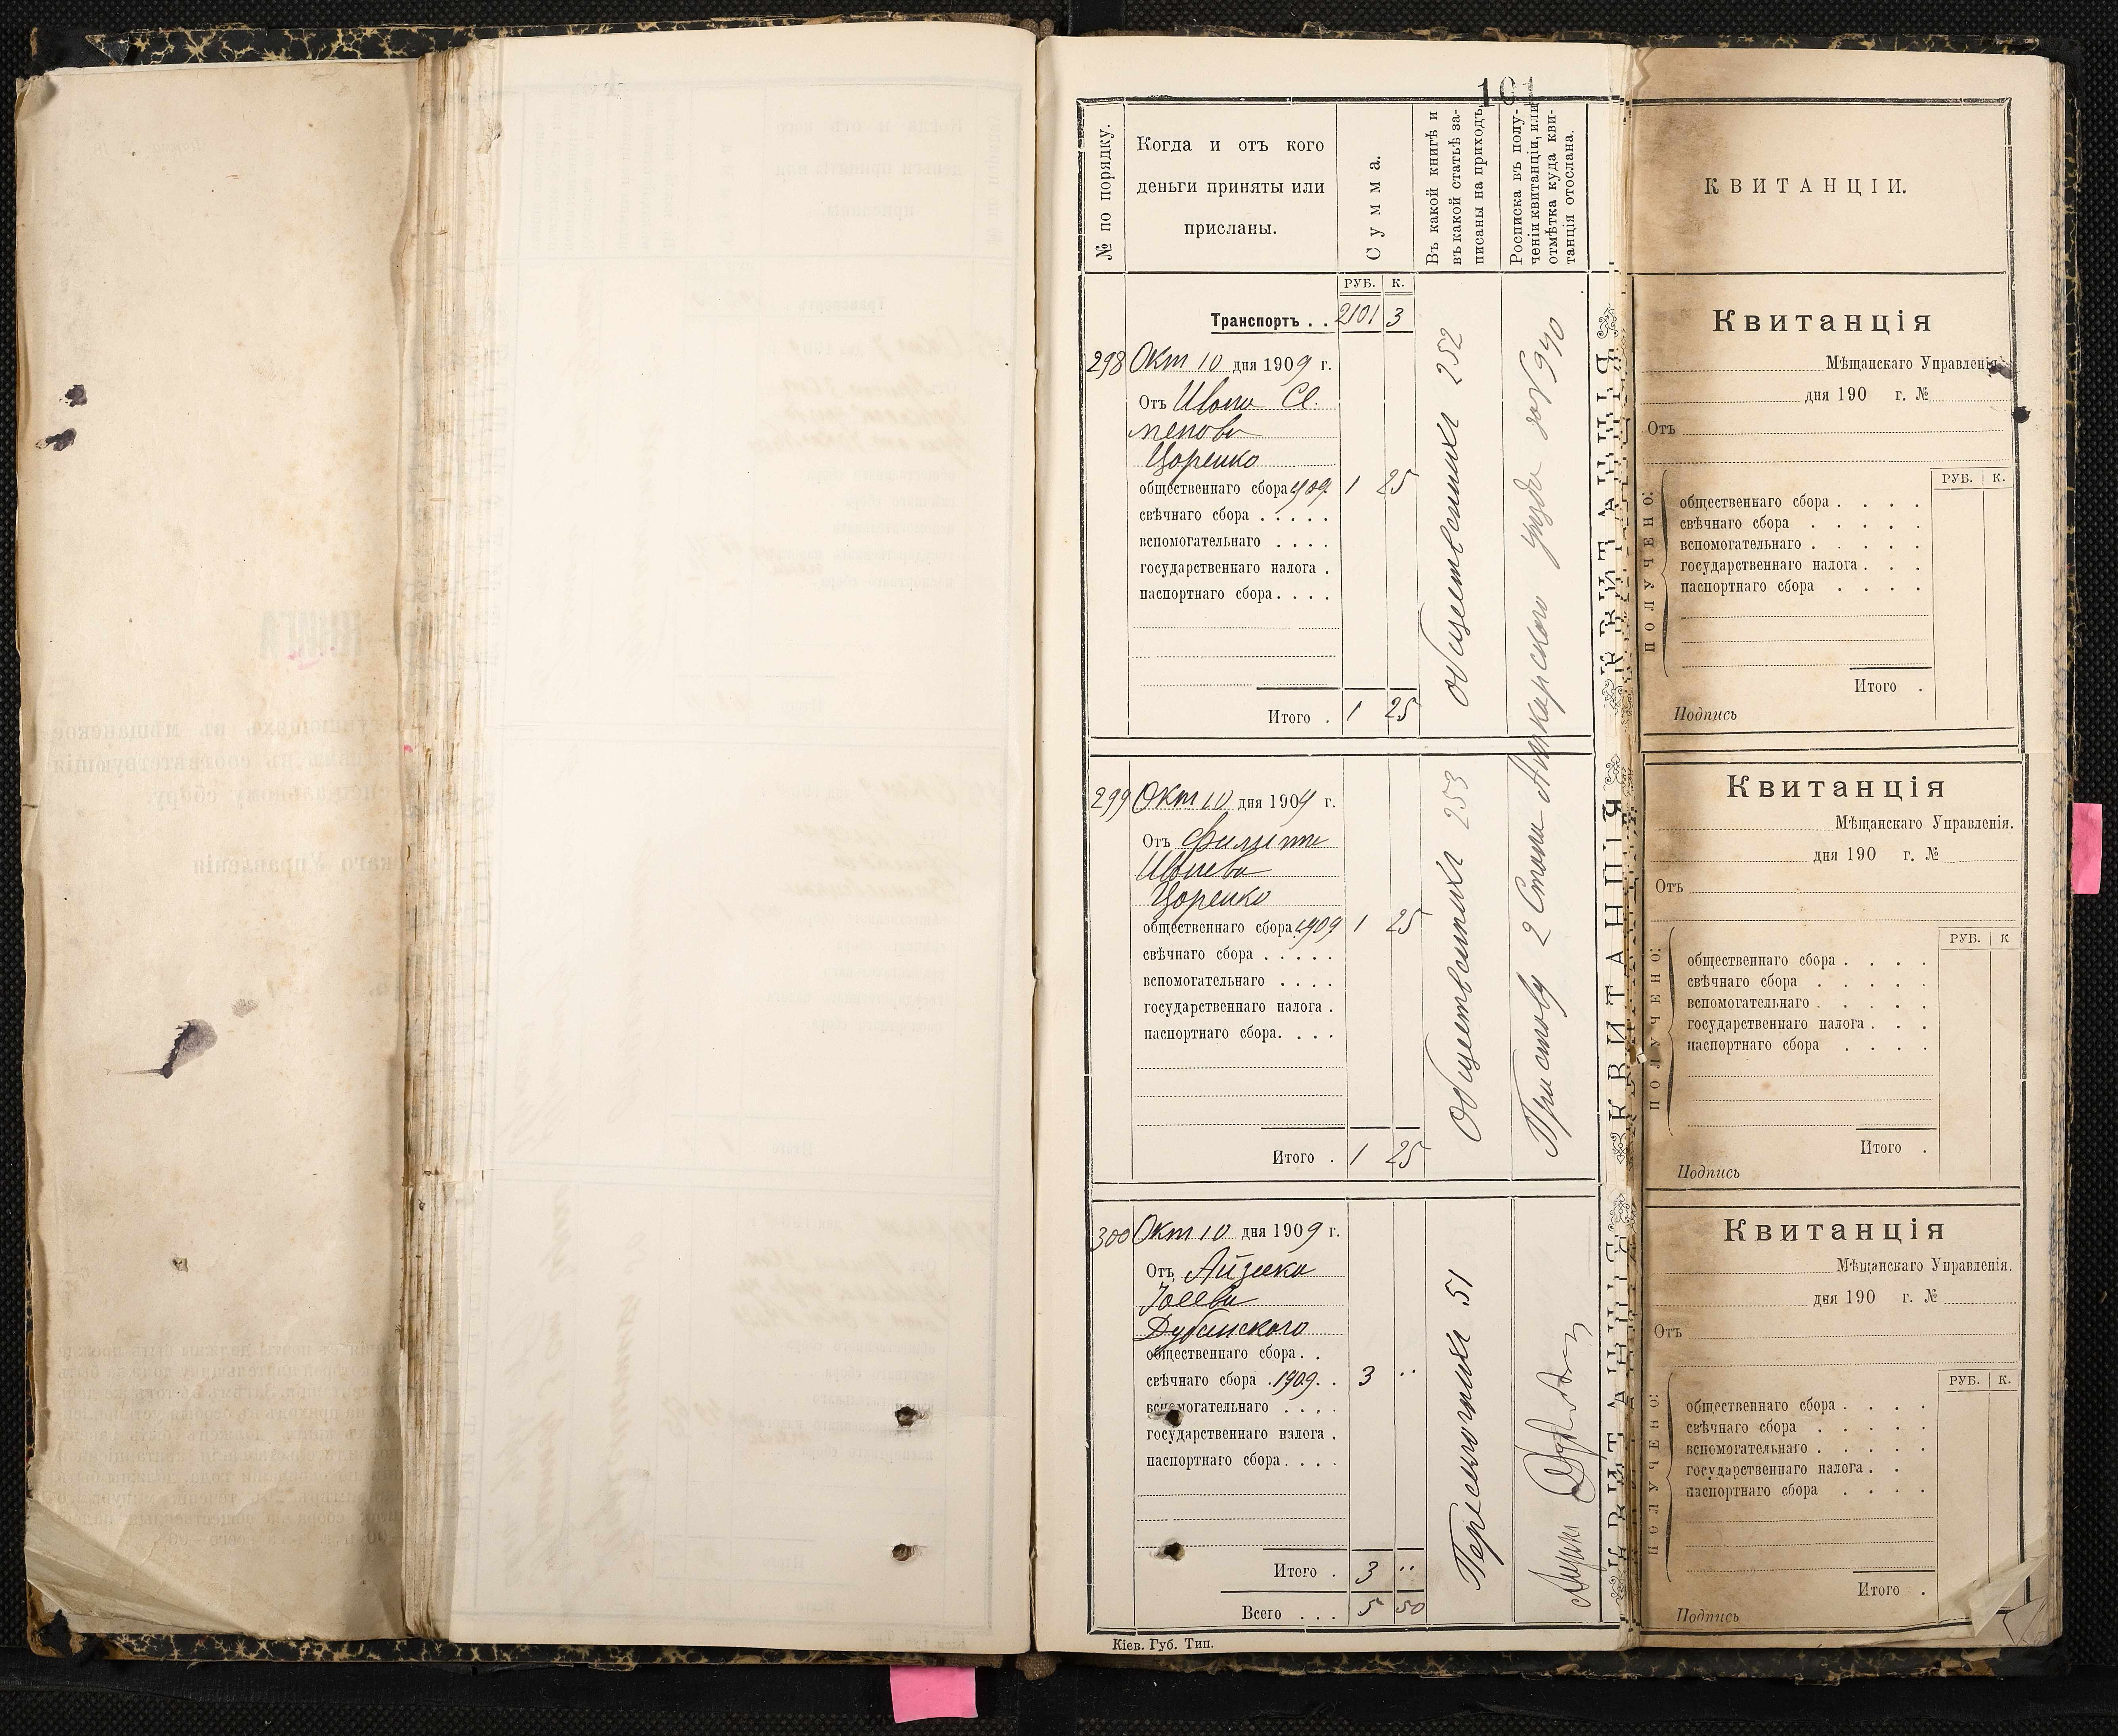 101
№ по порядку.
Когда и отъ кого
деньги приняты или
присланы.
Сумма.
Въ какой книгѣ и
въ какой статьѣ за-
писаны на приходъ
Росписка въ полу-
ченіи квитанціи, или
отмѣтка куда кви-
танція отослана.
РУБ. К.
Транспортъ . . 2101 3
298 Окт 10 дня 1909 г.
Отъ Ивана Сте
панова
Царенко
общественнаго сбора 909 1 25
свѣчнаго сбора . . . . .
вспомогательнаго . . . .
государственнаго налога .
паспортнаго сбора . . . .
Итого . 1 25
общественныхъ 252
299 Окт 10 дня 1909 г.
Отъ Филиппа
Иванова
Царенко
общественнаго сбора 1909 1 25
свѣчнаго сбора . . . . .
вспомогательнаго . . . .
государственнаго налога .
паспортнаго сбора. . . .
Итого . 1 25
Общественныхъ 253
Приставу 2 Стана уѣзда за № 940
300 Окт 10 дня 1909 г.
Отъ Айзика
Іосева
Дубинского
общественнаго сбора . .
свѣчнаго сбора . 1909 . . 3 ..
вспомогательнаго . . . .
государственнаго налога .
паспортнаго сбора . . . .
Итого . 3 ..
Всего . . . 5 50
51
Кіев. Губ. Тип.
КВИТАНЦІЯ
КВИТАНЦІЯ
КВИТАНЦІЯ
КВИТАНЦІИ.
Квитанція
Мѣщанскаго Управленія.
дня 190 г. №
Отъ
РУБ. К.
ПОЛУЧЕНО:
общественнаго сбора . . . .
свѣчнаго сбора . . . . .
вспомогательнаго . . . . .
государственнаго налога . . .
паспортнаго сбора . . . .
Итого .
Подпись
Квитанція
Мѣщанскаго Управленія.
дня 190 г. №
Отъ
РУБ. К
ПОЛУЧЕНО:
общественнаго сбора . . . .
свѣчнаго сбора . . . . .
вспомогательнаго . . . . .
государственнаго налога . . .
паспортнаго сбора . . . .
Итого .
Подпись
Квитанція
Мѣщанскаго Управленія.
дня 190 г. №
Отъ
РУБ. К.
ПОЛУЧЕНО:
общественнаго сбора . . . .
свѣчнаго сбора . . . . .
вспомогательнаго . . . . .
государственнаго налога . .
паспортнаго сбора . . . .
Итого .
Подпись